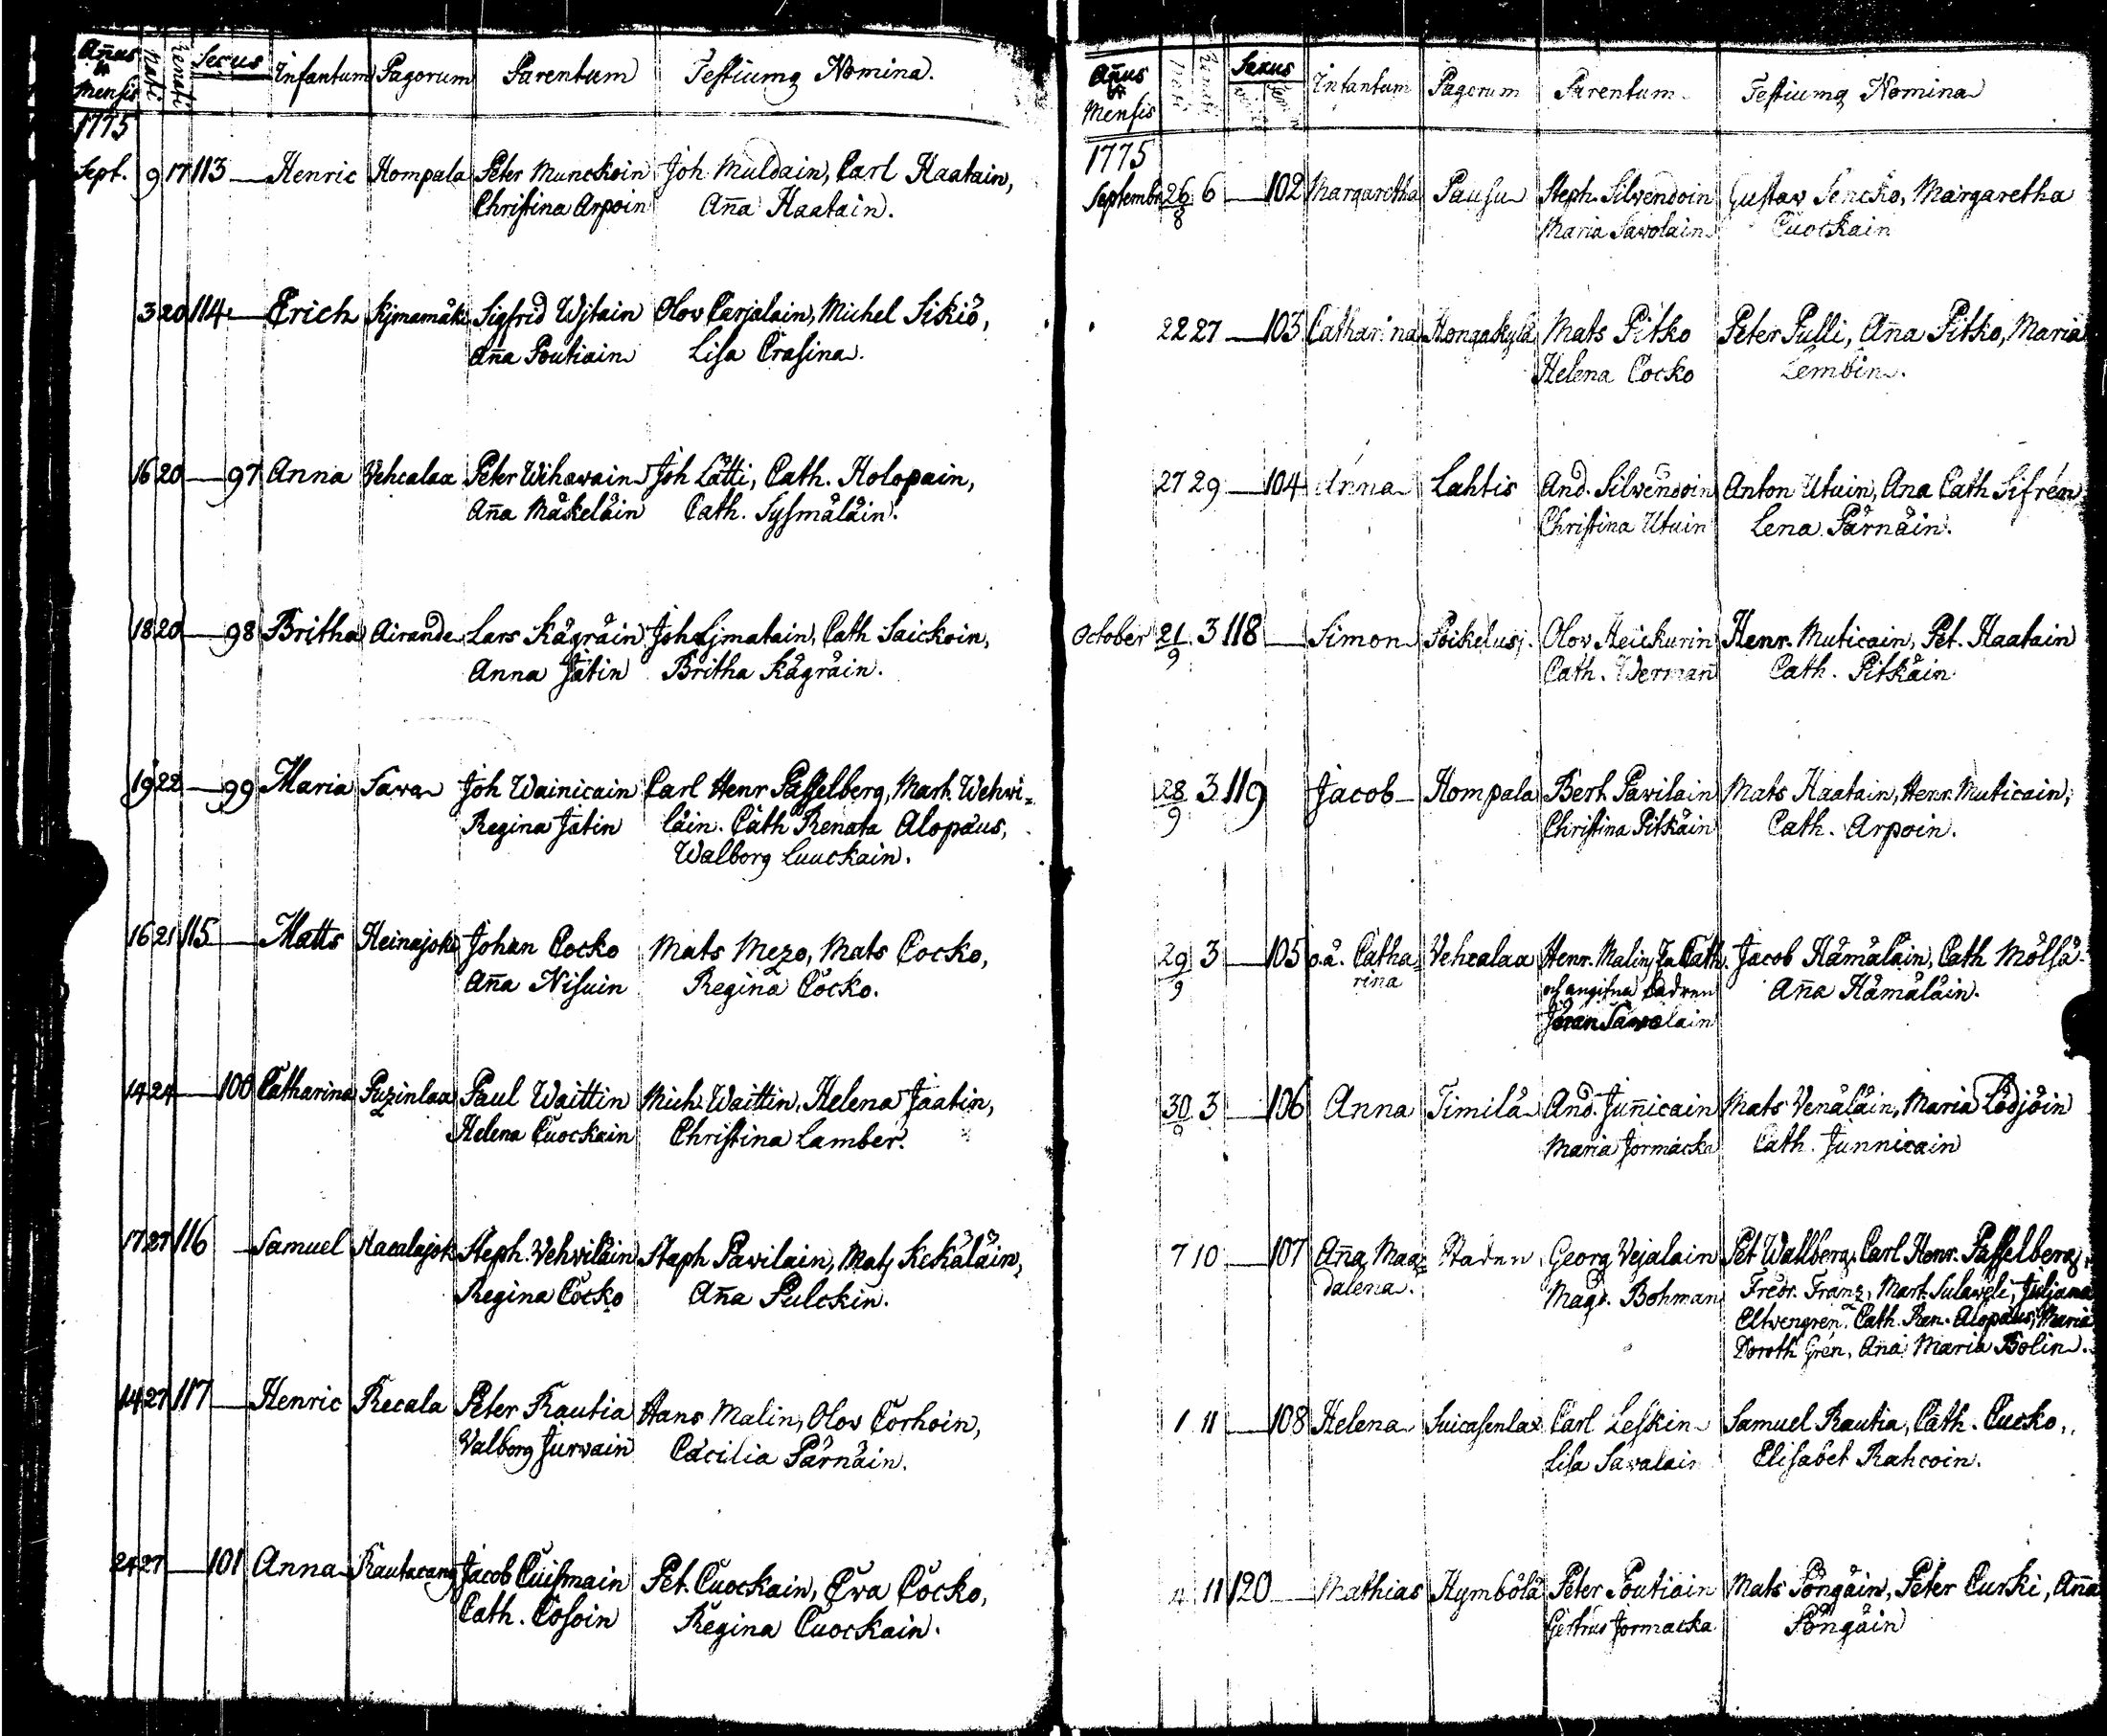 Añus & Mensis Nati Renati Sexus Infantum Pagorum Parentum Testiumq Nomina.
1775
Sept. 9 17 113 — Henric Hompala Peter Munckoin Joh Muldain, Carl Haatain,
Christina Arpoin Aña Haatain.
3 20 114 — Erich Kjmamäki Sigfrid Wjtain Olov Carjalain, Michel Sikiö,
Aña Poutiain Lisa Crasina.
16 20 — 97 Anna Vehcalax Peter Wihavain Joh Lätti, Cath. Holopain,
Aña Mäskeläin Cath. Sysmäläin.
18 20 — 98 Britha Airande Lars Kägräin Joh Ljmatain, Cath Saickoin,
Anna Jätin Britha Kägräin.
19 22 — 99 Maria Sawa Joh Wainicain Carl Henr Passelberg, Mart. Wehvi=
Regina Jätin läin. Cath Renata Alopäus,
Walborg Luuckain.
16 21 115 — Matts Heinajoki Johan Cocko Mats Mezo, Mats Cocko,
Aña Nisuin Regina Cocko.
14 24 — 100 Catharina Puzinlax Paul Waittin Mich. Waittin, Helena Jaatin,
Helena Cuockain Christina Lamber.
17 27 116 — Samuel Hacalajok Steph. Vehviläin Staph Pavilain, Mats Kekäläin,
Regina Cocko Aña Pulckin.
14 27 117 — Henric Recala Peter Rautia Hans Malin, Olov Corhoin,
Valborg Jurvain Cäcilia Pärnäin.
24 27 — 101 Anna Rautacang Jacob Cuismain Pet. Cuockain, Eva Cocko,
Cath. Cosoin Regina Cuockain.
Añus & Mensis Nati Renati Sexus Infantum Pagorum Parentum Testiumq Nomina
1775
Septembr 26/8 6 — 102 Margaretha Pausu Steph. Silvendoin Gustav Sencko, Margaretha
Maria Savolain Cuockain
22 27 — 103 Catharina Hongakylä Mats Pitko Peter Pulli, Aña Pitko, Maria
Helena Cocko Lembin.
27 29 — 104 Anna Lahtis And. Silvendoin Anton Utuin, Ana Cath Sifrén
Christina Utuin Lena Pärnäin.
October 21/9 3 118 — Simon Poikelus Olov Heickurin Henr. Muticain, Pet. Haatain
Cath. Wermañ Cath. Pitkäin
28/9 3 119 Jacob Hompala Bert. Pavilain Mats Haatain, Henr. Muticain,
Christina Pitkäin Cath. Arpoin.
29/9 3 — 105 o.ä. Catha= Vehcalax Henr. Malin Cath. Jacob Hämäläin, Cath Mölsä
rina och angifna fadren Aña Hämäläin.
Jöran Savolain
30/9 3 — 106 Anna Timilä And. Juñicain Mats Venäläin, Maria Lödjöin
Maria Jormacka Cath. Junnicain
7 10 — 107 Aña Mag= Staden Georg Vejalain Pet Wahlberg, Carl Henr. Passelberg,
dalena. Magd. Bohman Fredr. Franz, Mart. Sulaveli, Juliana
Elwengren. Cath. Ren. Alopäus, Maria
Doroth Grén, Ana Maria Bolin.
1 11 — 108 Helena Suicasenlax Carl Leskin Samuel Rautia, Cath. Cucko,
Lisa Savalain Elisabet Rahcoin.
4 11 120 — Mathias Hymbölä Peter Poutiain Mats Pöngäin, Peter Curki, Aña
Gertrud Jormacka Pöngäin